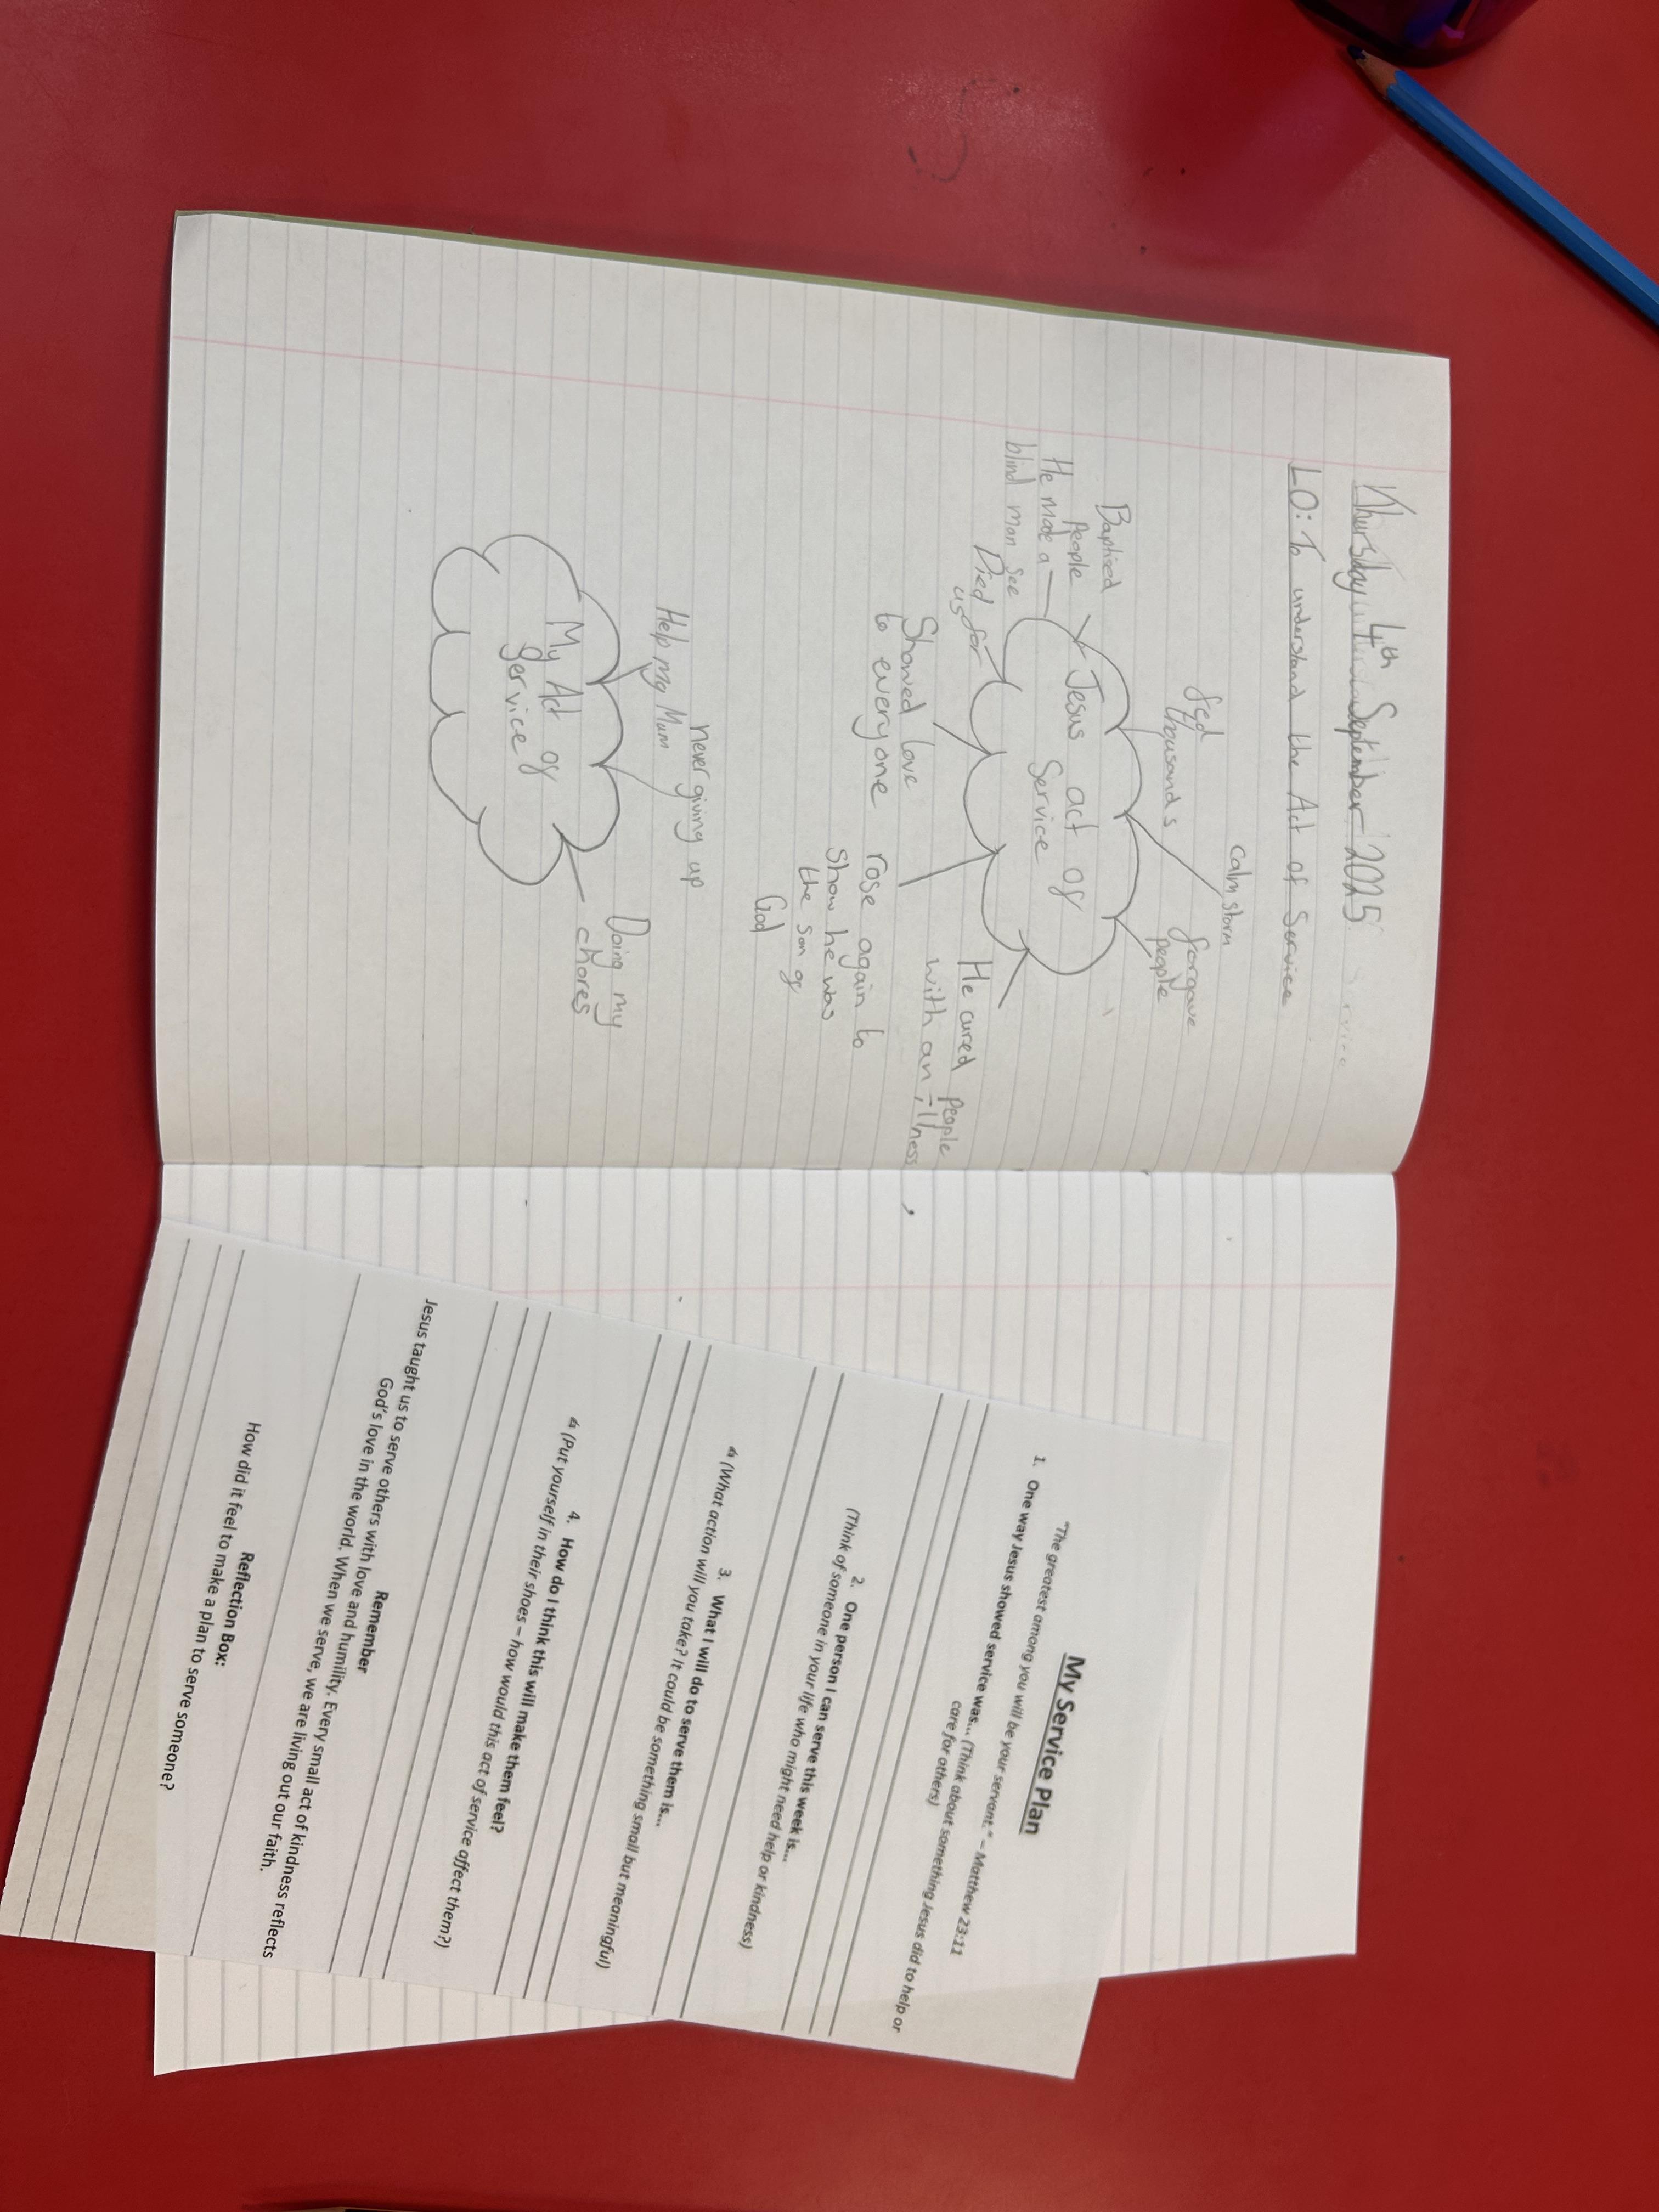 Thursday 4th September 2025
LO: To understand the Act of Service
Calm storm
fed
thousands
forgave
people
Baptized
people
He made a
blind man see
Jesus act of
Service
Died for
us
He cured people
with an illness
Showed love
to everyone
rose again to
show he was
the son of
God
never giving up
Help my Mum
Doing my
chores
My Act of
Service
My Service Plan
"The greatest among you will be your servant." – Matthew 23:11
1. One way Jesus showed service was... (Think about something Jesus did to help or
care for others)
2. One person I can serve this week is...
(Think of someone in your life who might need help or kindness)
3. What I will do to serve them is...
(What action will you take? It could be something small but meaningful)
4. How do I think this will make them feel?
(Put yourself in their shoes – how would this act of service affect them?)
Remember
Jesus taught us to serve others with love and humility. Every small act of kindness reflects
God's love in the world. When we serve, we are living out our faith.
Reflection Box:
How did it feel to make a plan to serve someone?